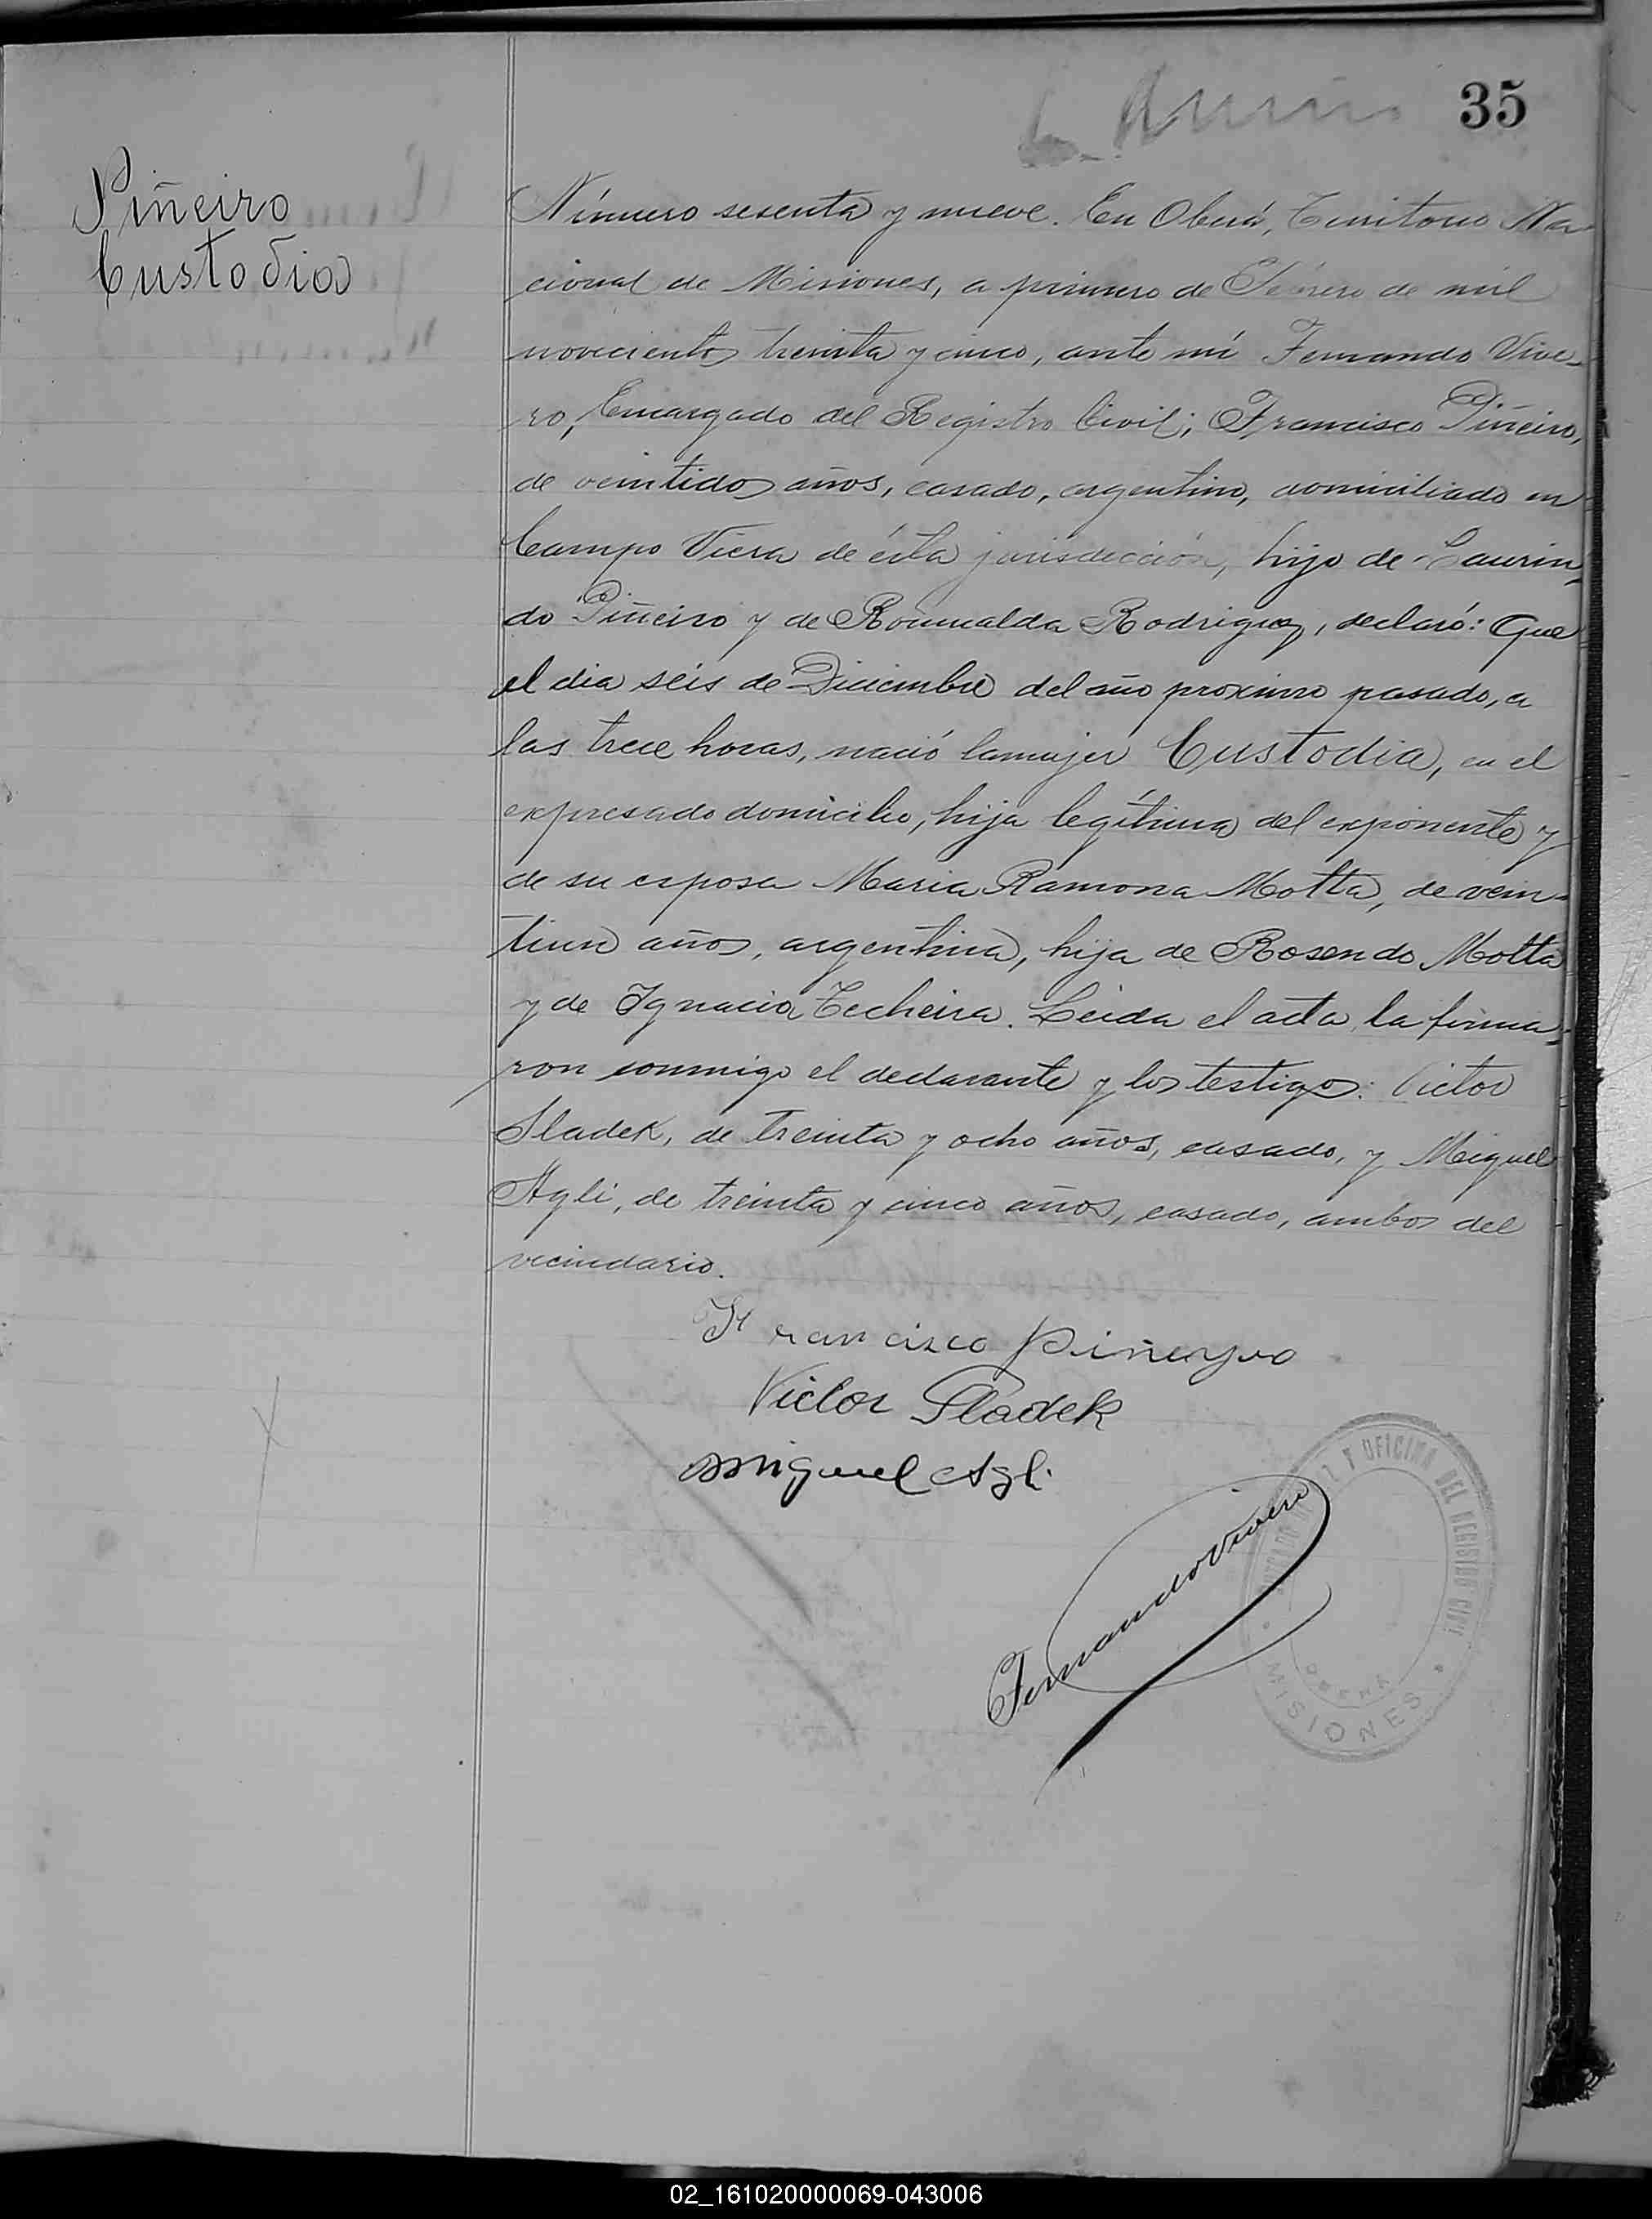 35
Piñeiro
Custodia
Número sesenta y nueve. En Oberá, Territorio Na-
cional de Misiones, a primero de Febrero de mil
novecientos treinta y cinco, ante mí Fernando Vive-
ro, Encargado del Registro Civil; Francisco Piñeiro,
de veintidos años, casado, argentino, domiciliado en
Campo Viera de ésta jurisdicción, hijo de Laurin-
do Piñeiro y de Romualda Rodriguez, declaró: Que
el dia seis de Diciembre del año proximo pasado, a
las trece horas, nació la mujer Custodia, en el
expresado domicilio, hija legítima del exponente y
de su esposa Maria Ramona Motta, de vein-
tiun años, argentina, hija de Rosendo Motta
y de Ignacia Techeira. Leida el acta, la firma-
ron conmigo el declarante y los testigos: Victor
Sladek, de treinta y ocho años, casado, y Miguel
Agli, de treinta y cinco años, casado, ambos del
vecindario.
Francisco Piñeyro
Victor Sladek
Miguel Agli
Fernando Vivero
Z Y OFICINA DEL REGISTRO CIVIL
OBERÁ
MISIONES
02_161020000069-043006